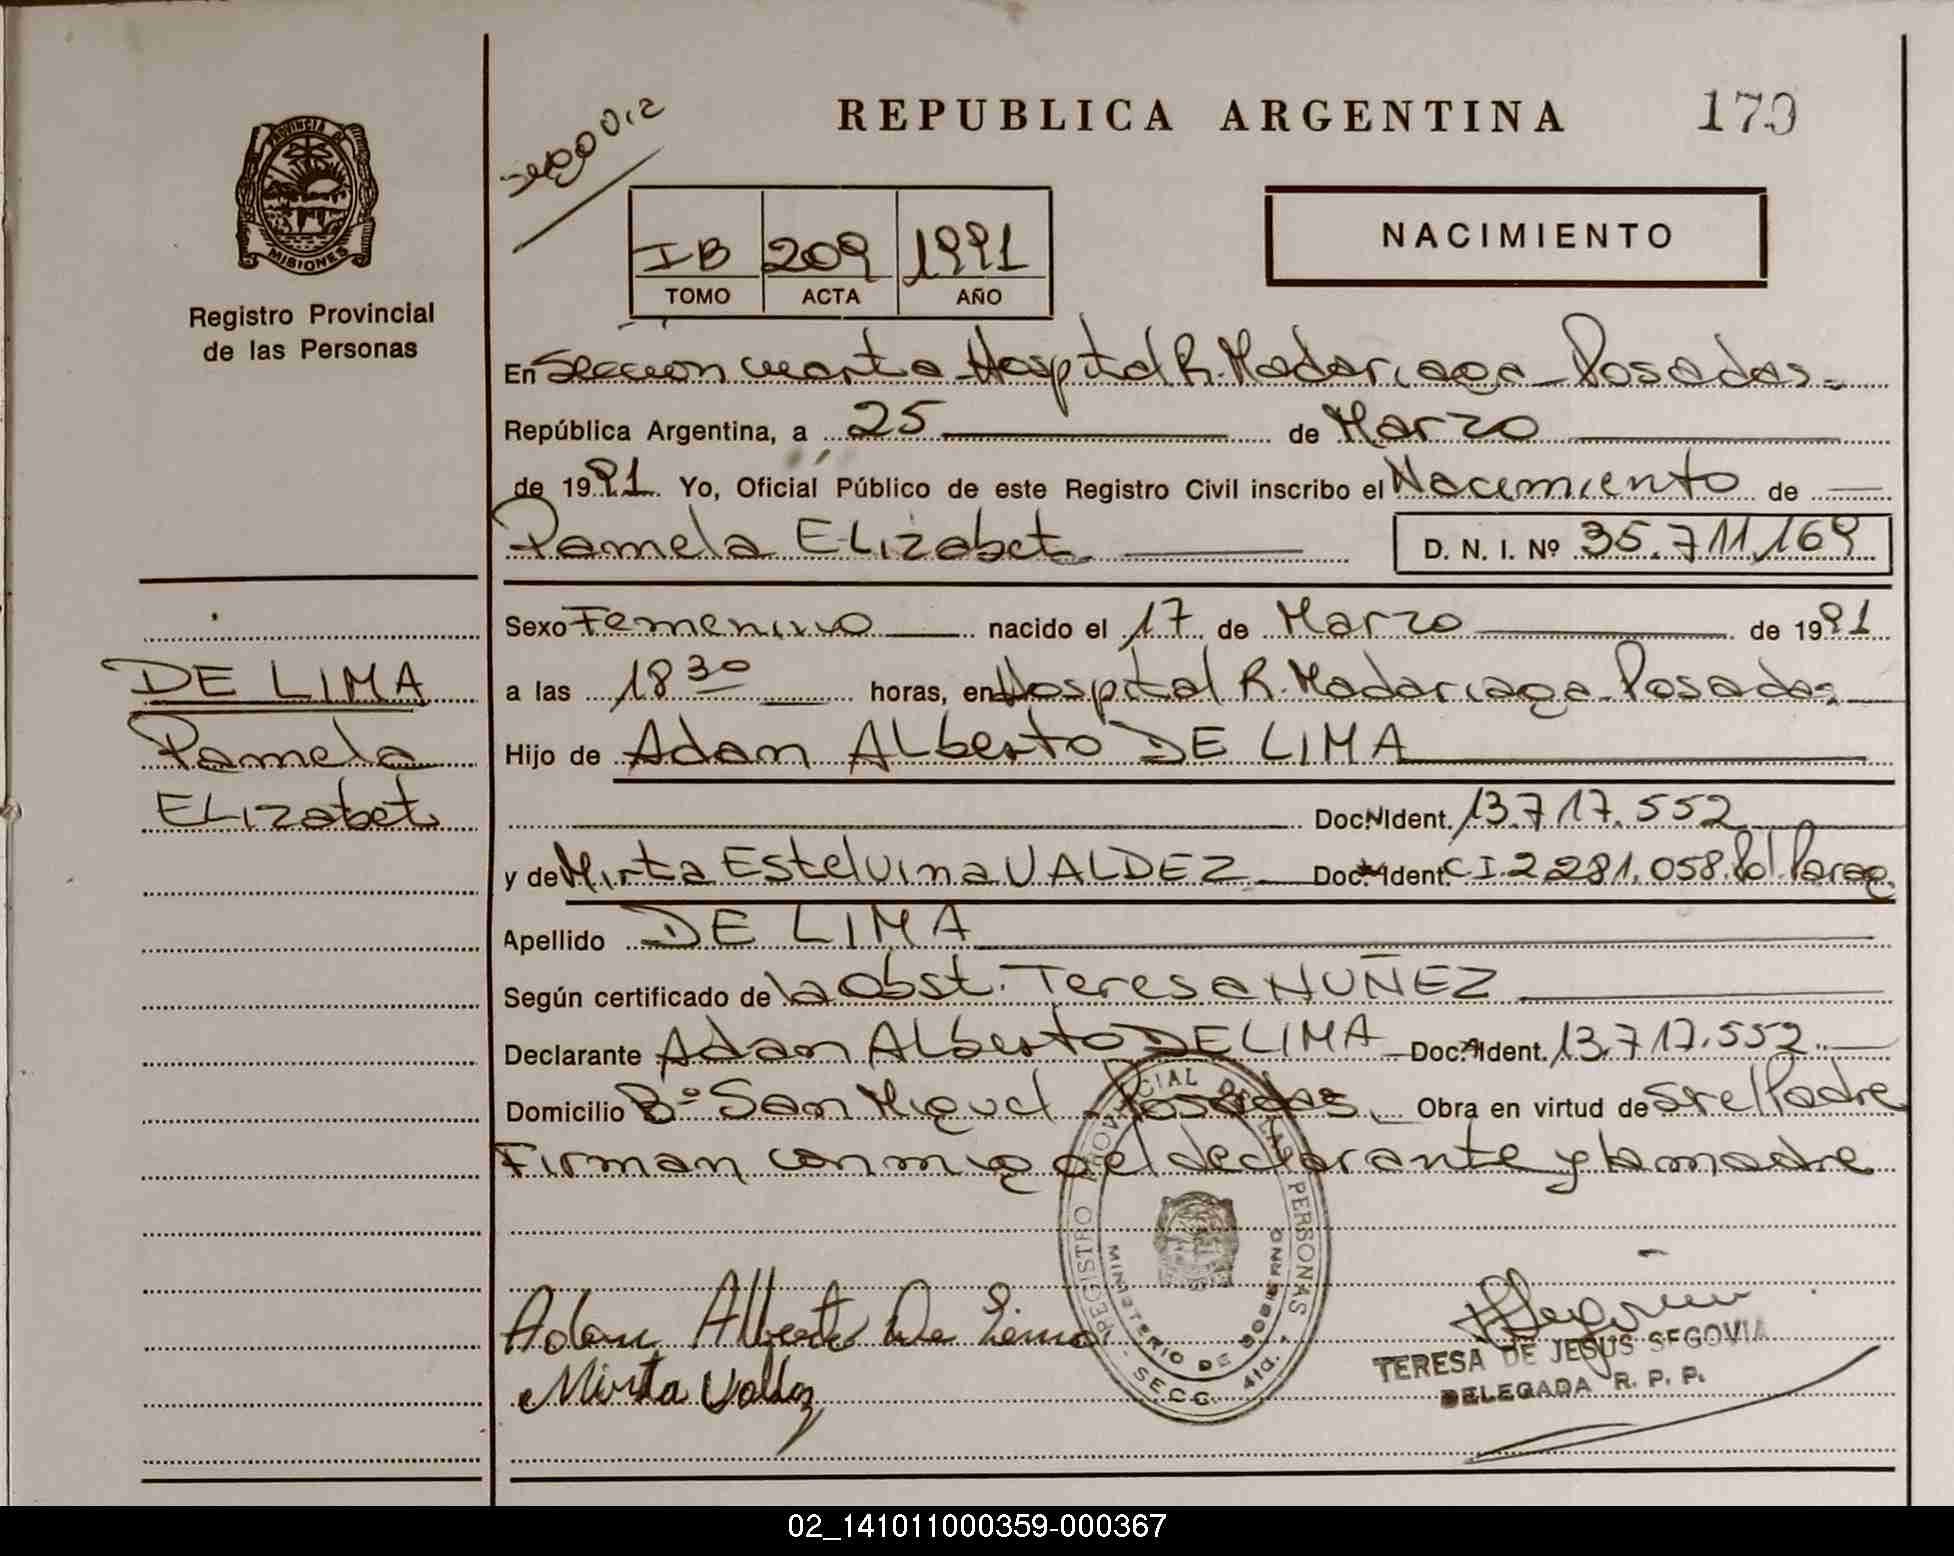 REPUBLICA ARGENTINA
PROVINCIA DE
MISIONES
Registro Provincial
de las Personas
IB 209 1991
TOMO ACTA AÑO
NACIMIENTO
En Seccion cuarta Hospital R. Madariaga - Posadas -
República Argentina, a 25 de Marzo
de 1991. Yo, Oficial Público de este Registro Civil inscribo el Nacimiento de
Pamela ELizabet D. N. I. Nº 35.711.169
Sexo Femenino nacido el 17 de Marzo de 1991
DE LIMA
a las 18 30 horas, en Hospital R. Madariaga - Posadas
Pamela
Hijo de Adan ALberto DE LIMA
ELizabet
Doc. Ident. 13.717.552
y de Mirta Estelvina VALDEZ Doc. Ident. C I. 2281.058. Pol. Parag.
Apellido DE LIMA
Según certificado de la Obst. Teresa NUÑEZ
Declarante Adan ALberto DE LIMA Doc. Ident. 13.717.552
Domicilio Bº San Miguel - Posadas. Obra en virtud de ser el Padre
Firman conmigo el declarante y la madre
REGISTRO PROVINCIAL DE LAS PERSONAS
MINISTERIO DE GOBIERNO
SECC. 4ta.
Adan Alberto De Lima
Mirta Valdez
TERESA DE JESUS SEGOVIA
DELEGADA R. P. P.
02_141011000359-000367